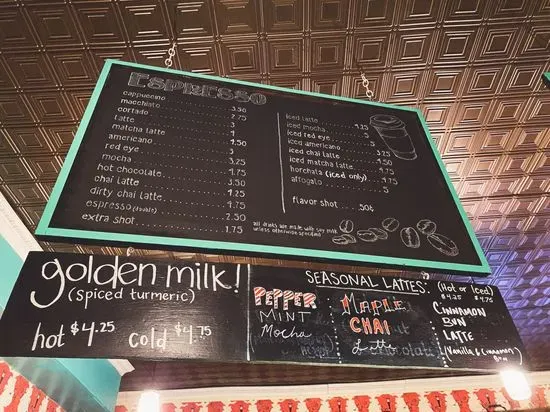 ESPRESSO
cappuccino
macchiato 3.50
cortado 2.75
latte 3
matcha latte 4
americano 4.50
red eye 3
mocha
hot chocolate 3.25
chai latte 3.25
dirty chai latte 4.25
espresso (double) 2.50
extra shot 1.75
iced latte 4.25
iced mocha
iced red eye
iced americano
iced chai latte
iced matcha latte 4.75
horchata (iced only) 4.75
affogato 5
flavor shot 50¢
all drinks are made with soy milk
unless otherwise specified
golden milk!
(spiced turmeric)
hot $4.25 cold $4.75
SEASONAL LATTES:
PEPPER
MINT
Mocha
MAPLE
CHAI
Latte
(Hot or Iced)
$4.25 $4.75
CINNAMON
BUN
LATTE
(Vanilla & Cinnamon)